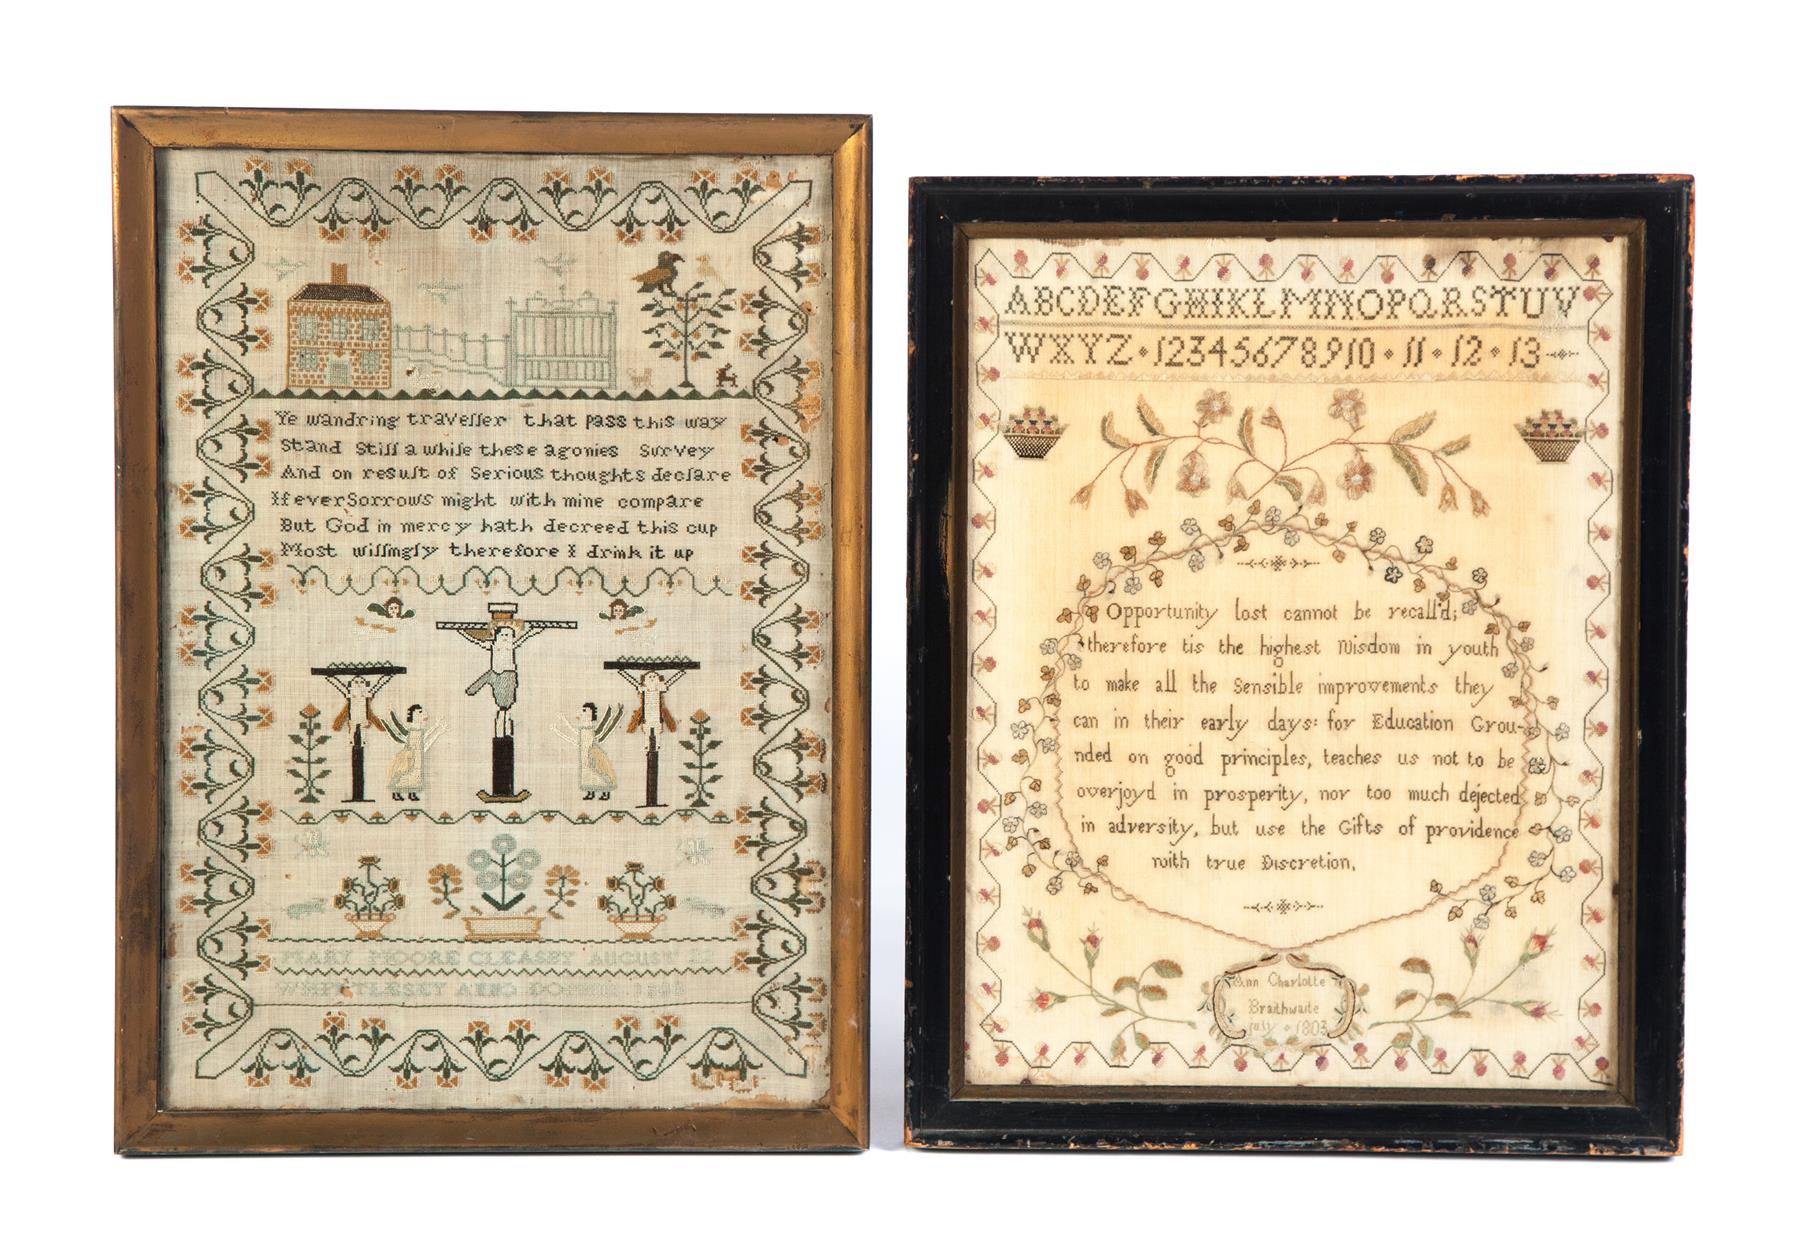 Ye wandring traveller that pass this way
Stand Still a while these agonies Survey
And on result of Serious thoughts declare
If ever Sorrows might with mine compare
But God in mercy hath decreed this cup
Most willingly therefore I drink it up
MARY MOORE CLEASBY AUGUST 22
ANNO DOMINI
ABCDEFGHIKLMNOPQRSTUV
WXYZ 12345678910 11 12 13
Opportunity lost cannot be recall'd;
therefore tis the highest Wisdom in youth
to make all the Sensible improvements they
can in their early days: for Education Grou-
nded on good principles, teaches us not to be
overjoyd in prosperity, nor too much dejected
in adversity, but use the Gifts of providence
with true Discretion.
Ann Charlotte
Braithwaite
july 1803